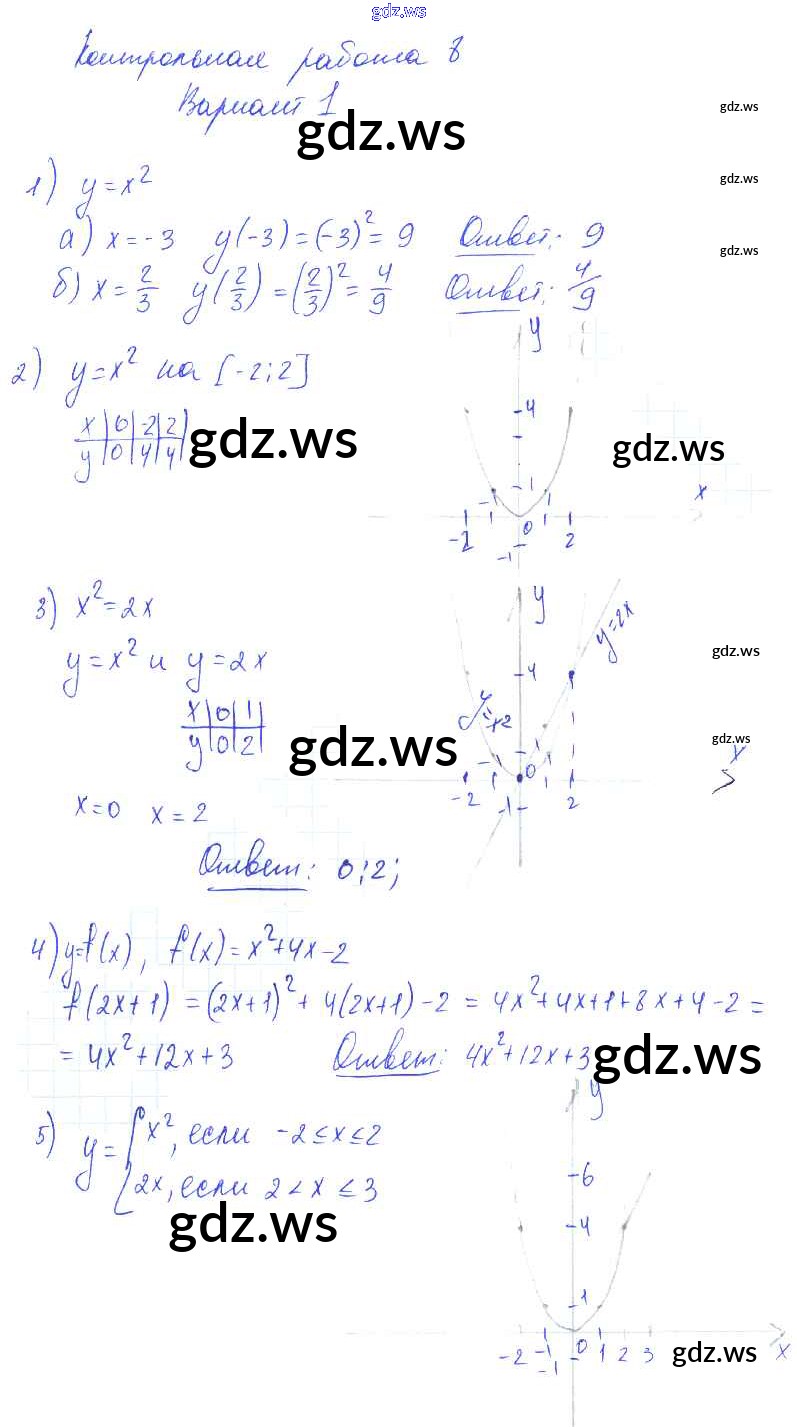 gdz.ws
Контрольная работа 8
Вариант 1
gdz.ws
gdz.ws
1) y = x²
gdz.ws
а) x = -3 y(-3) = (-3)² = 9 Ответ: 9
gdz.ws
б) x = 2/3 y(2/3) = (2/3)² = 4/9 Ответ: 4/9
2) y = x² на [-2; 2]
x | 0 | -2 | 2 |
y | 0 | 4 | 4 |
gdz.ws
gdz.ws
y
4
1
-1 1 x
-2 0 2
-1
3) x² = 2x
y = x² и y = 2x
x | 0 | 1 |
y | 0 | 2 |
gdz.ws
gdz.ws
gdz.ws
y
y=2x
4
y=x2
-1 1 x
-2 0 2
-1
x = 0 x = 2
Ответ: 0; 2;
4) y=f(x), f(x) = x²+4x-2
f(2x+1) = (2x+1)² + 4(2x+1) - 2 = 4x²+4x+1+8x+4-2 =
= 4x²+12x+3 Ответ: 4x²+12x+3
gdz.ws
5) y = { x², если -2 ≤ x ≤ 2
2x, если 2 < x ≤ 3
gdz.ws
y
6
4
1
-2 -1 0 1 2 3 x
-1
gdz.ws